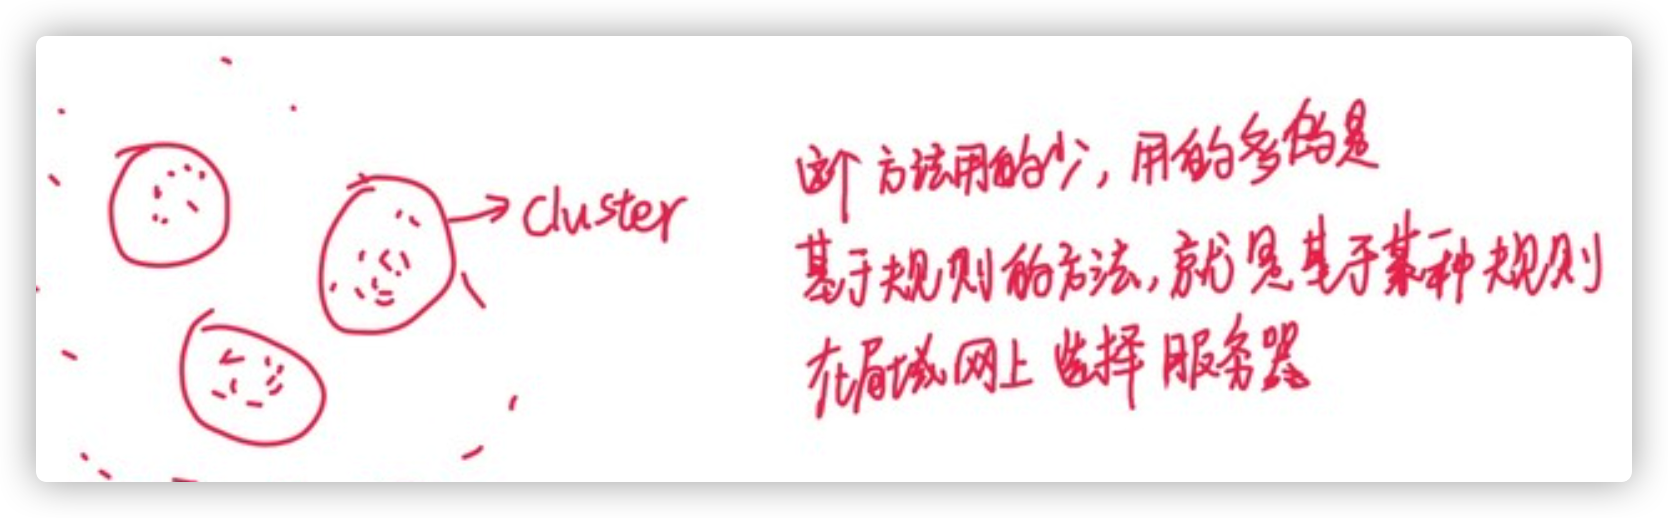 cluster
这个方法用的少，用的多的是
基于规则的方法，就是基于某种规则
在局域网上选择服务器